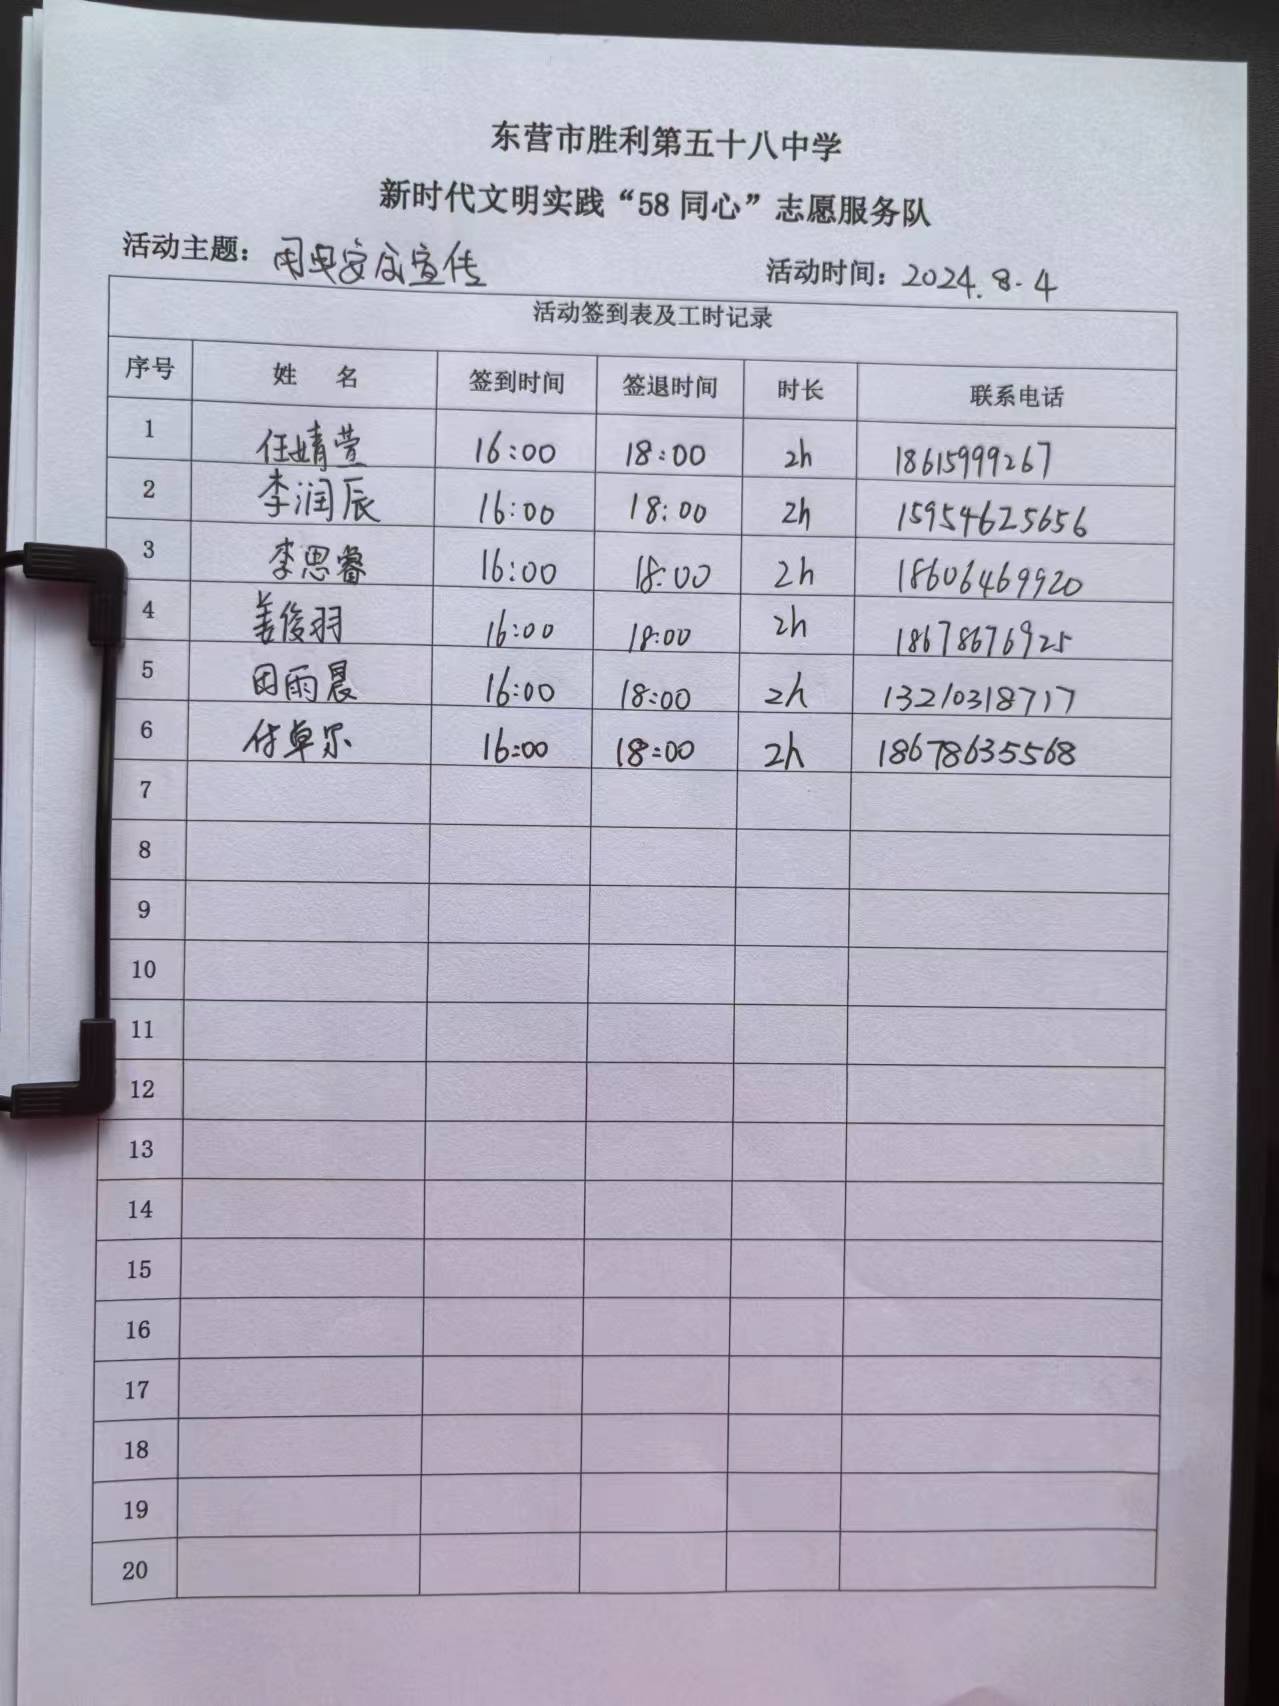 东营市胜利第五十八中学
新时代文明实践“58 同心”志愿服务队
活动主题：用电安全宣传 活动时间：2024.8.4
活动签到表及工时记录
序号 姓 名 签到时间 签退时间 时长 联系电话
1 任婧萱 16:00 18:00 2h 18615999267
2 李润辰 16:00 18:00 2h 15954625656
3 李思睿 16:00 18:00 2h 18606469920
4 姜俊羽 16:00 18:00 2h 18678676925
5 田雨晨 16:00 18:00 2h 13210318717
6 付卓尔 16:00 18:00 2h 18678635568
7
8
9
10
11
12
13
14
15
16
17
18
19
20